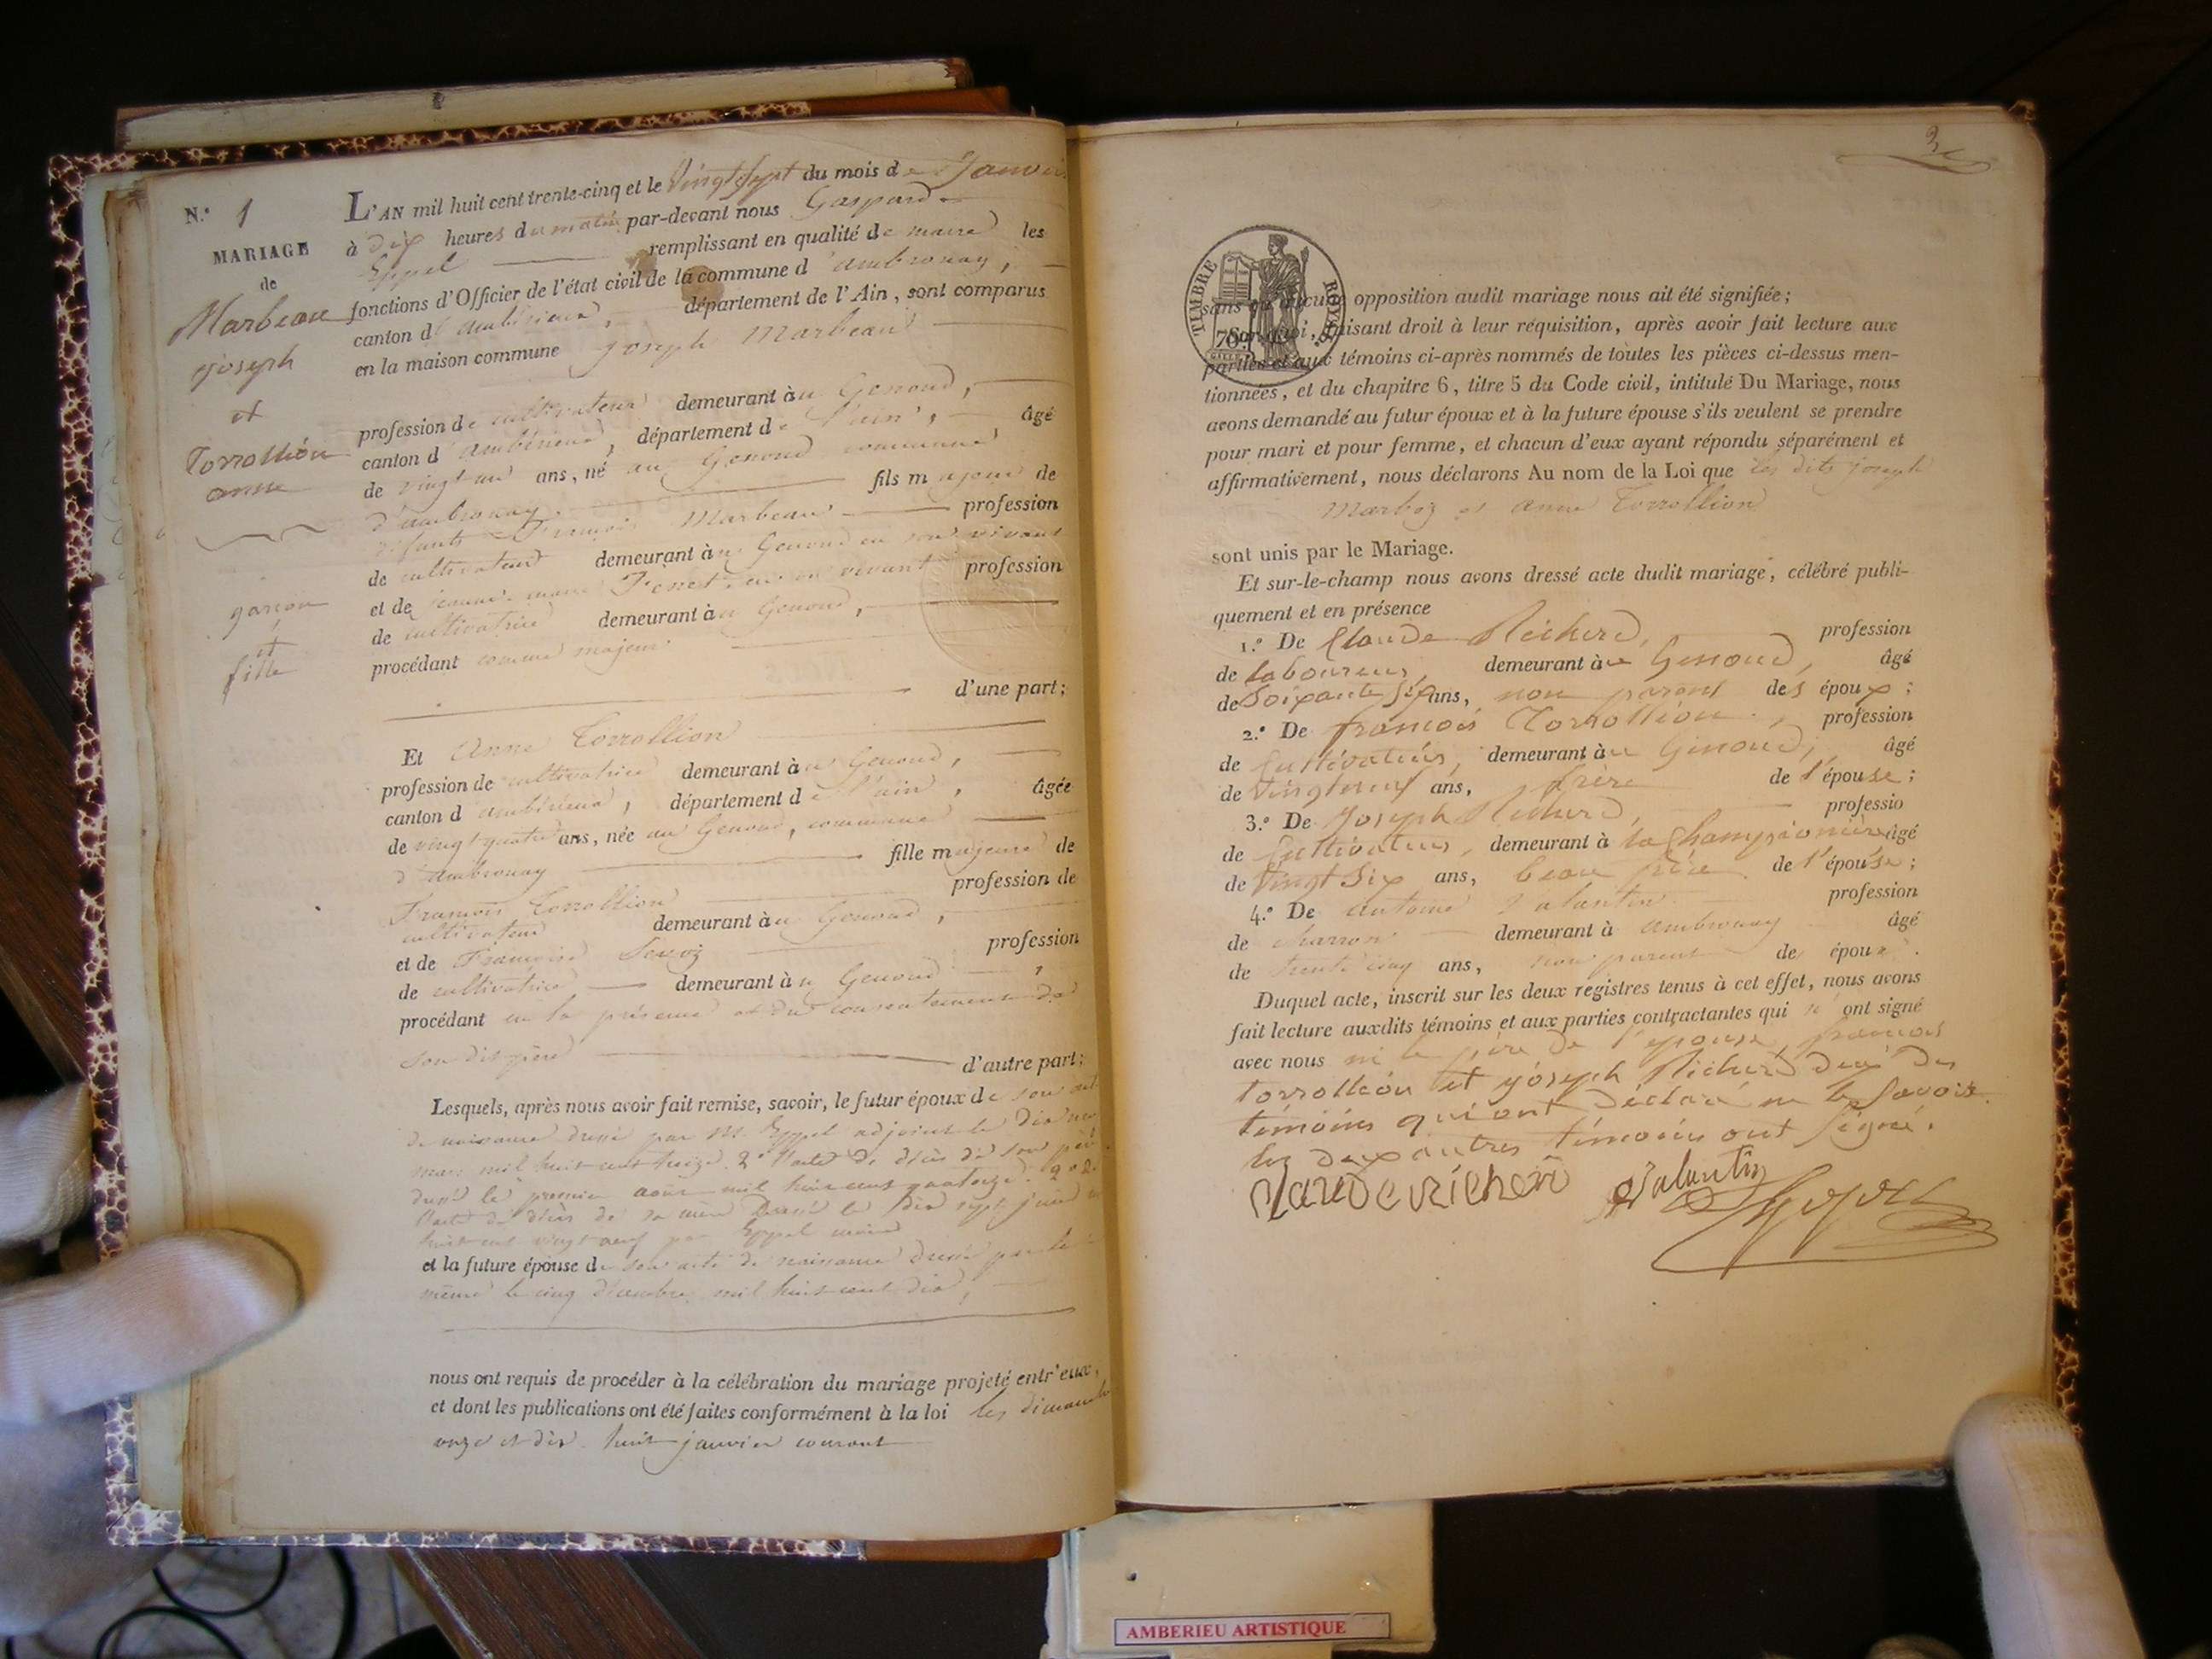 N.° 1
MARIAGE
de
Marbeau
joseph
et
Torrollion
anne
garçon
et
fille
L'AN mil huit cent trente-cinq et le Vingt Sept du mois de Janvier
à dix heures du matin par-devant nous Gaspard
Eppel remplissant en qualité de maire les
fonctions d'Officier de l'état civil de la commune d'ambronay,
canton d'ambérieux, département de l'Ain, sont comparus
en la maison commune joseph Marbeau
profession de cultivateur demeurant au Genoud,
canton d'ambérieux, département de l'ain, âgé
de vingt un ans, né au Genoud commune
d'ambronay. fils majeur de
défunts François Marbeau profession
de cultivateur demeurant au Genoud en son vivant
et de jeanne marie en son vivant profession
de cultivatrice demeurant au Genoud,
procédant comme majeur
d'une part;
Et Anne Torrollion
profession de cultivatrice demeurant au Genoud,
canton d'ambérieux, département de l'ain, âgée
de vingt quatre ans, née au Genoud, commune
d'ambronay fille majeure de
François Torrollion profession de
cultivateur demeurant au Genoud,
et de Françoise profession
de cultivatrice demeurant au Genoud,
procédant en la présence et du consentement de
son dit père d'autre part;
Lesquels, après nous avoir fait remise, savoir, le futur époux de son acte
de naissance dressé par M. Eppel adjoint le dix neuf
mars mil huit cent treize. 2° l'acte de décès de son père
dressé le premier août mil huit cent quatorze.
l'acte de décès de sa mère dressé le dix sept juin
huit cent vingt neuf par Eppel maire
et la future épouse de son acte de naissance dressé par le
même le cinq décembre mil huit cent dix,
nous ont requis de procéder à la célébration du mariage projeté entr'eux,
et dont les publications ont été faites conformément à la loi les dimanches
onze et dix huit janvier courant
TIMBRE ROYAL
sans qu'aucune opposition audit mariage nous ait été signifiée;
Sur quoi, faisant droit à leur réquisition, après avoir fait lecture aux
parties et aux témoins ci-après nommés de toutes les pièces ci-dessus men-
tionnées, et du chapitre 6, titre 5 du Code civil, intitulé Du Mariage, nous
avons demandé au futur époux et à la future épouse s'ils veulent se prendre
pour mari et pour femme, et chacun d'eux ayant répondu séparément et
affirmativement, nous déclarons Au nom de la Loi que les dits joseph
Marboz et anne Torrollion
sont unis par le Mariage.
Et sur-le-champ nous avons dressé acte dudit mariage, célébré publi-
quement et en présence
1.° De Claude Richerd, profession
de laboureur, demeurant au Genoud, âgé
de Soixante Six ans, non parent des époux;
2.° De françois Torrollion, profession
de Cultivateur, demeurant au Genoud, âgé
de Vingt neuf ans, frère de l'épouse;
3.° De Joseph Richerd, professio
de Cultivateur, demeurant à la Championière âgé
de Vingt Six ans, beau frère de l'épouse;
4.° De antoine Valantin profession
de charron demeurant à ambronay âgé
de trente cinq ans, non parent de époux.
Duquel acte, inscrit sur les deux registres tenus à cet effet, nous avons
fait lecture auxdits témoins et aux parties contractantes qui n'ont signé
avec nous ni le père de l'épouse, françois
torrollion et joseph Richerd deux des
témoins qui ont déclaré ne le Savoir.
les deux autres témoins ont Signé.
Claude richerd Valantin Eppel
AMBERIEU ARTISTIQUE